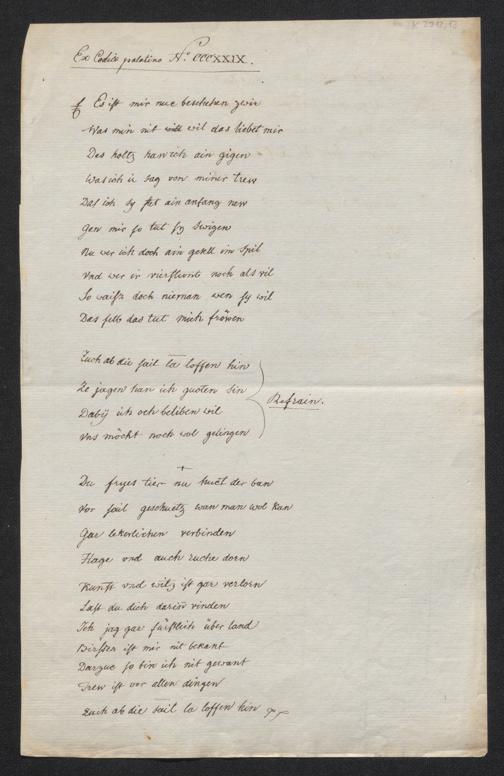 Ex Codice palatino N.º CCCXXIX.
Es ist mir nue beschehen zwir
Was min nit will wil das liebet mir
Das holtz han ich ain gigen
Was ich ir sag von miner trew
Das ich sy ain anfang new
Gen mir so tut sy swigen
Nu wer ich doch ain gesell im spil
Vnd wer ir vierstund noch als vil
So waisz doch nieman wen sy wil
Das selb das tut mich fröwen
Zuch ab die sail la loffen hin
Ze jagen han ich guoten sin
Daby ich och beliben wil
Vns möcht noch wol gelingen
Refrain.
Du fryes tier nu der ban
Vor sail geschuetz wan man wol kan
Gar lekerlichen verbinden
Hage vnd auch ruche dorn
Kunst vnd witz ist gar verlorn
Last du dich darin vinden
Ich jag gar fürstlich über land
Birssen ist mir nit bekant
Darzue so bin ich nit gewant
Trew ist vor allen dingen
Zuch ab die sail la loffen hin